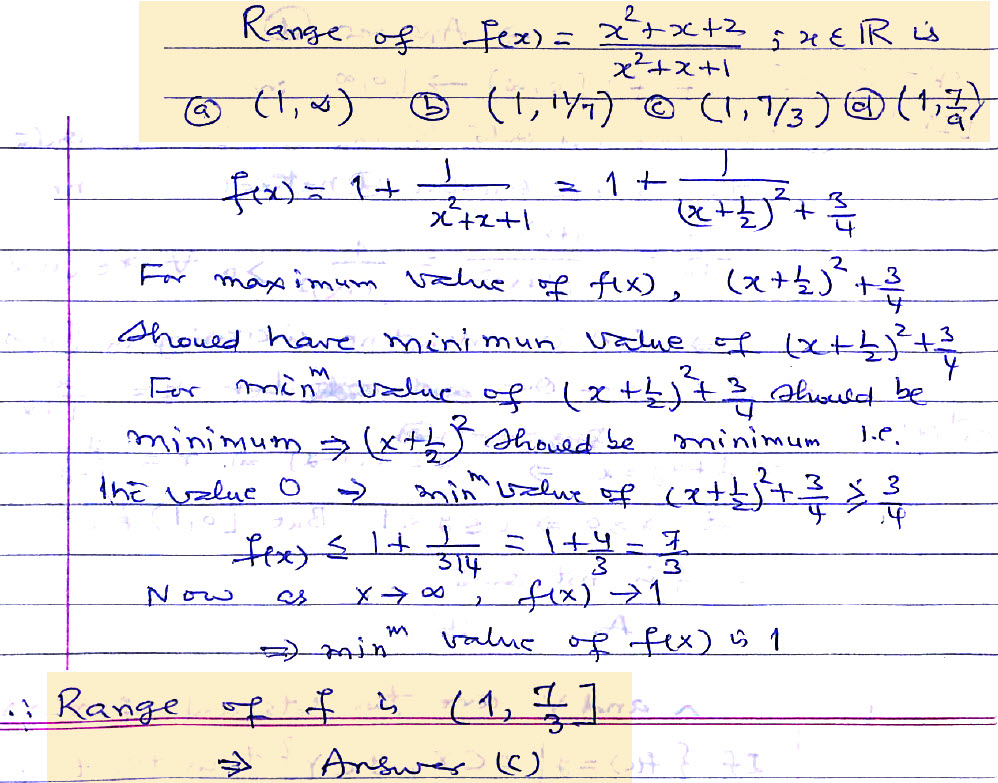 Range of f(x) = (x²+x+2)/(x²+x+1) ; x ∈ ℝ is
ⓐ (1, ∞) ⓑ (1, 11/7) ⓒ (1, 7/3) ⓓ (1, 7/9)
f(x) = 1 + 1/(x²+x+1) = 1 + 1/((x+1/2)² + 3/4)
For maximum value of f(x), (x+1/2)² + 3/4
should have minimun value of (x+1/2)² + 3/4
For minᵐ value of (x+1/2)² + 3/4 should be
minimum ⇒ (x+1/2)² should be minimum i.e.
the value 0 ⇒ minᵐ value of (x+1/2)² + 3/4 ≥ 3/4
f(x) ≤ 1 + 1/(3/4) = 1 + 4/3 = 7/3
Now as x → ∞, f(x) → 1
⇒ minᵐ value of f(x) is 1
∴ Range of f is (1, 7/3]
⇒ Answer (c)